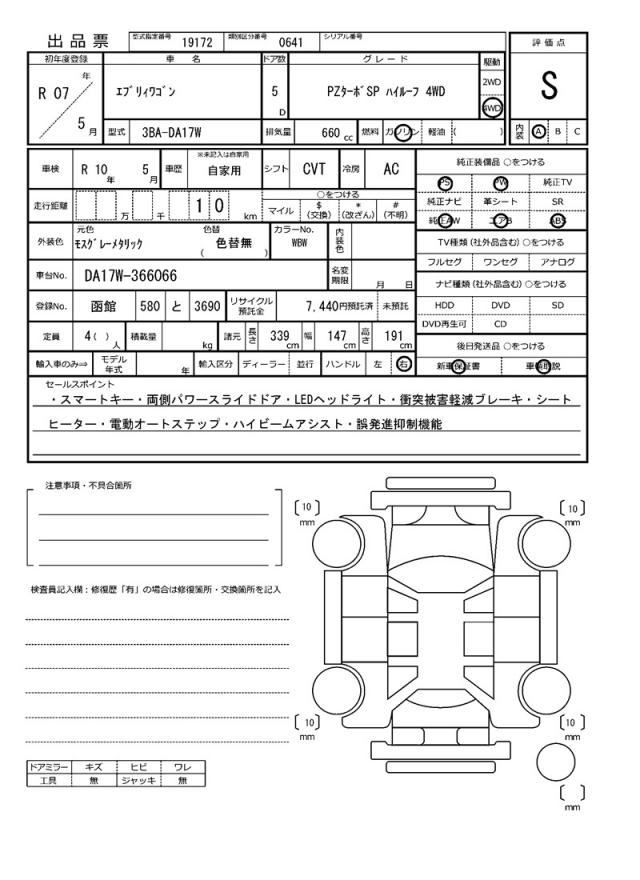 出品票 型式指定番号 19172 類別区分番号 0641 シリアル番号
評価点
S
内装 A B C
初年度登録 車名 ドア数 グレード 駆動
R 07 年 5 月 エブリィワゴン 5 D PZターボSP ハイルーフ 4WD 2WD 4WD
型式 3BA-DA17W 排気量 660 cc 燃料 ガソリン 軽油 ( )
車検 R 10 年 5 月 車歴 ※未記入は自家用 自家用 シフト CVT 冷房 AC
走行距離 万 千 1 0 km ○をつける マイル $(交換) *(改ざん) #(不明)
外装色 元色 モスグレーメタリック 色替 ( 色替無 ) カラーNo. WBW 内装色
車台No. DA17W-366066 名変期限 月 日
登録No. 函館 580 と 3690 リサイクル預託金 7,440円預託済 未預託
定員 4( ) 人 積載量 kg 諸元 長さ 339 cm 幅 147 cm 高さ 191 cm
輸入車のみ⇒ モデル年式 年 輸入区分 ディーラー 並行 ハンドル 左 右
純正装備品 ○をつける
PS PW 純正TV
純正ナビ 革シート SR
純正AW エアB ABS
TV種類 (社外品含む) ○をつける
フルセグ ワンセグ アナログ
ナビ種類 (社外品含む) ○をつける
HDD DVD SD
DVD再生可 CD
後日発送品 ○をつける
新車保証書 車輌取説
セールスポイント
・スマートキー・両側パワースライドドア・LEDヘッドライト・衝突被害軽減ブレーキ・シート
ヒーター・電動オートステップ・ハイビームアシスト・誤発進抑制機能
注意事項・不具合箇所
検査員記入欄：修復歴「有」の場合は修復箇所・交換箇所を記入
ドアミラー キズ ヒビ ワレ
工具 無 ジャッキ 無
〔10〕 〔10〕
mm mm
〔10〕 〔10〕
mm mm
〔 〕
mm